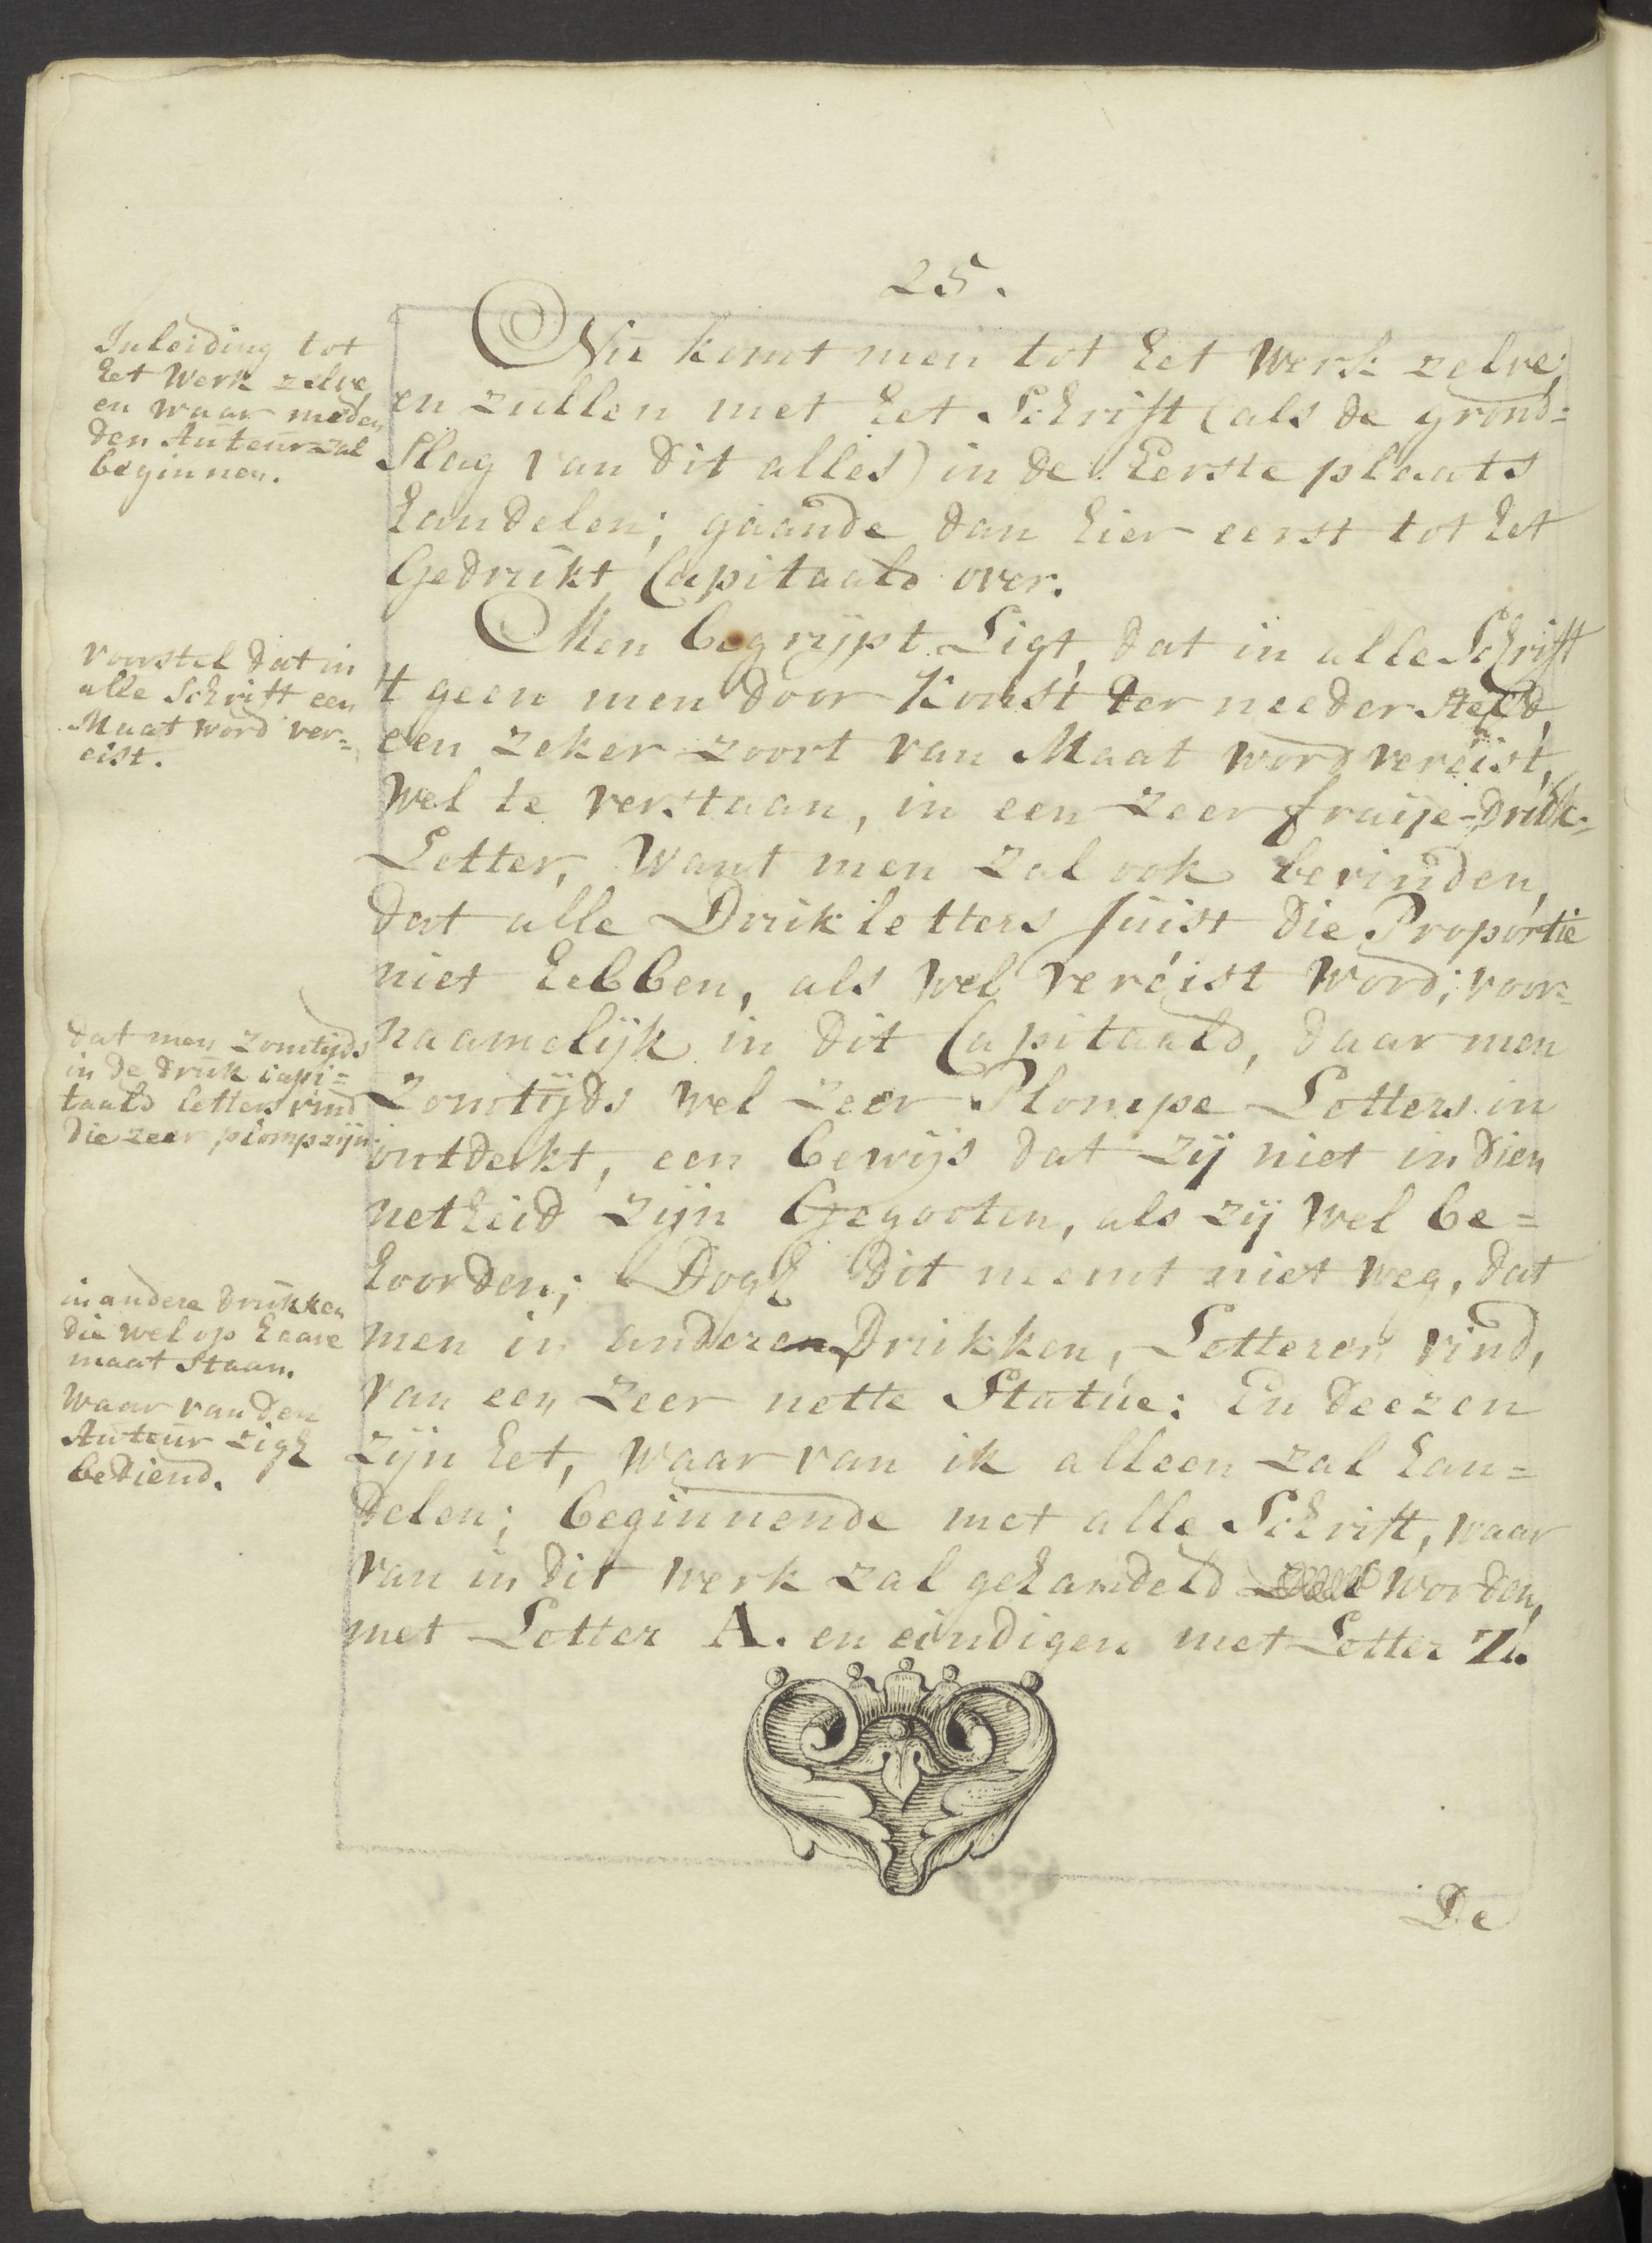 25.
Inleiding tot
het Werk zelve,
en waar meden
den Auteur zal
beginnen.
Nu komt men tot het Werk zelve;
en zullen met het Schrift (als de grond=
Slag van dit alles) in de Eerste plaats
handelen; gaande dan hier eerst tot het
Gedrukt Capitaals over.
voorstel dat in
alle Schrift een
Maat word ver=
eist.
Men begrijpt Ligt, dat in alle Schrift
't geen men door Konst ter needer steld,
een zeker zoort van Maat word vereist,
wel te verstaan, in een zeer fraije-Druk-
Letter, want men zal ook bevinden,
dat alle Drukletters Juist die Proportie
niet hebben, als wel vereist word; voor=
dat men zomtijds
in de druk capi=
taals letters vind
die zeer plomp zijn.
naamelijk in dit Capitaals, daar men
Zomtijds wel zeer Plompe Letters in
ontdekt, een bewijs dat zij niet in dien
netheid zijn Gegooten, als zij wel be=
hoorden; Dogh dit neemt niet weg, dat
in andere drukken
die wel op haare
maat Staan.
waar van den
Auteur zigh
bediend.
men in anderen Drukken, Letteren vind,
van een zeer nette Statue: En deezen
zijn het, waar van ik alleen zal han=
delen; beginnende met alle Schrift, waar
van in dit werk zal gehandeld worden,
met Letter A. en eindigen met Letter Z.
De